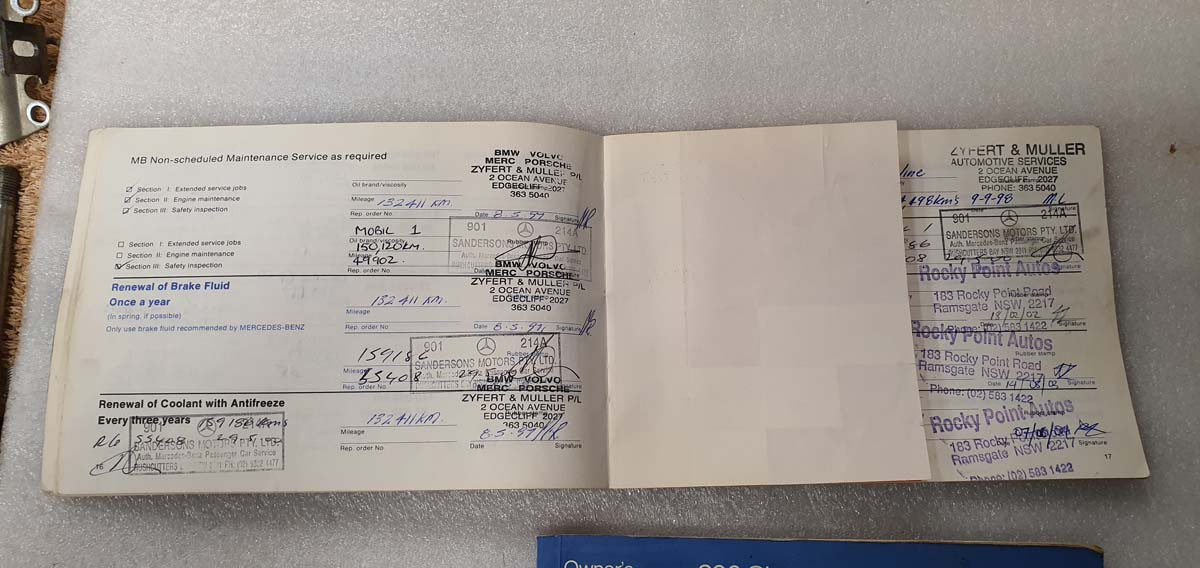 MB Non-scheduled Maintenance Service as required
Section I: Extended service jobs
Section II: Engine maintenance
Section III: Safety inspection
Oil brand/viscosity
Mileage 132411 KM.
Rep. order No. Date 8.5.97 Signature
BMW VOLVO
MERC PORSCHE
ZYFERT & MULLER P/L
2 OCEAN AVENUE
EDGECLIFF 2027
363 5040
901 214A
SANDERSONS MOTORS PTY. LTD.
Section I: Extended service jobs
Section II: Engine maintenance
Section III: Safety inspection
MOBIL 1
Oil brand/viscosity
150,120KM.
49902.
Rep. order No.
Rubber stamp
Renewal of Brake Fluid
Once a year
(In spring, if possible)
Only use brake fluid recommended by MERCEDES-BENZ
132411 KM.
Mileage
Rep. order No. Date 8.5.97 Signature
BMW VOLVO
MERC PORSCHE
ZYFERT & MULLER P/L
2 OCEAN AVENUE
EDGECLIFF 2027
363 5040
901 214A
SANDERSONS MOTORS PTY. LTD.
Mileage
55408
Rep. order No.
Renewal of Coolant with Antifreeze
Every three years
132411KM.
Mileage
Rep. order No. 8.5.97 Signature
BMW VOLVO
MERC PORSCHE
ZYFERT & MULLER P/L
2 OCEAN AVENUE
EDGECLIFF 2027
363 5040
901 214A
R/o 55408
SANDERSONS MOTORS PTY. LTD.
Auth. Mercedes-Benz Passenger Car Service
16
ZYFERT & MULLER
AUTOMOTIVE SERVICES
2 OCEAN AVENUE
EDGECLIFF 2027
PHONE: 363 5040
9-9-98
901 214A
SANDERSONS MOTORS PTY. LTD.
Auth. Mercedes-Benz Passenger Car Service
Rocky Point Autos
183 Rocky Point Road
Ramsgate NSW, 2217
Rubber stamp
Date 13/02/02
(02) 583 1422 Signature
Rocky Point Autos
183 Rocky Point Road
Rubber stamp
Ramsgate NSW 2217
Date 14/08/02 Signature
Phone: (02) 583 1422
Rocky Point Autos
183 Rocky
Ramsgate NSW 2217
Signature
Phone: (02) 583 1422
17
Owner's